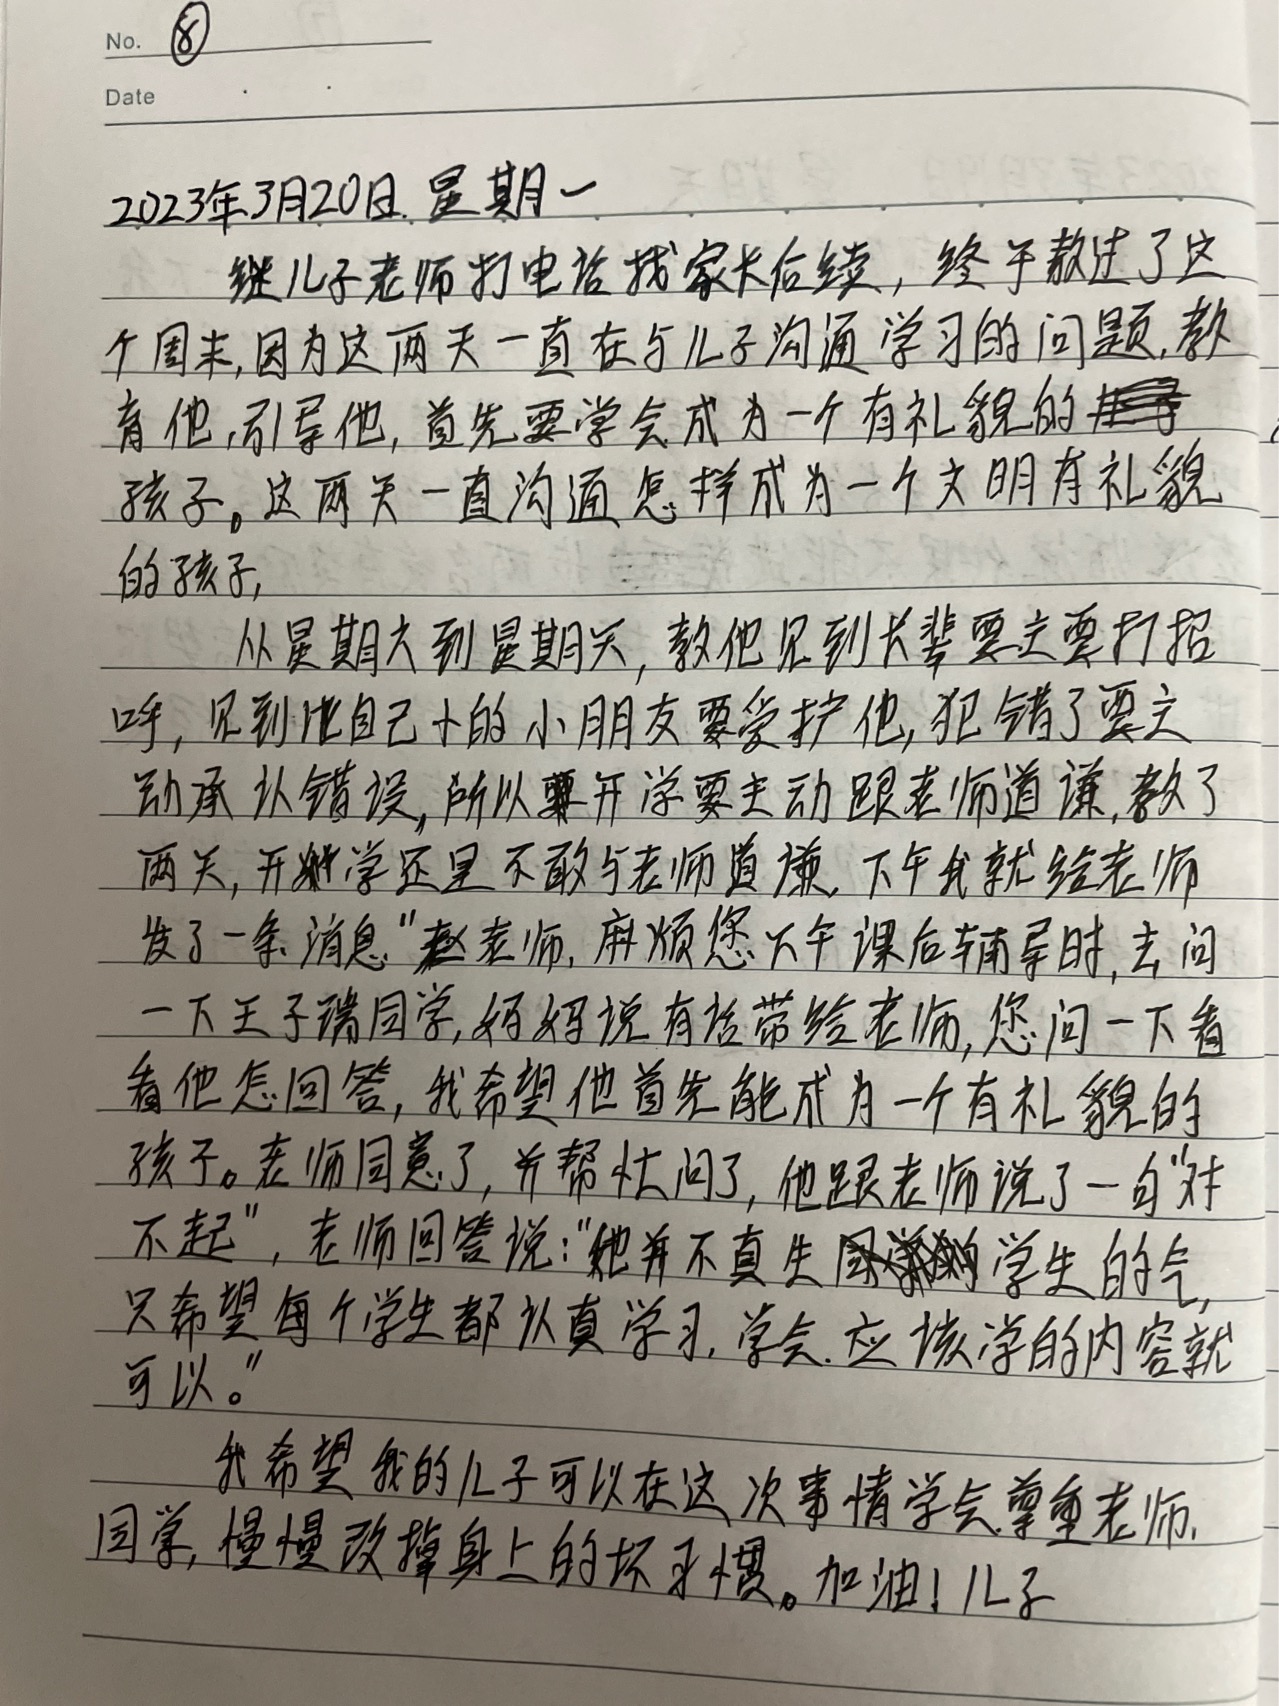 No. ⑧
Date
2023年3月20日.星期一
继儿子老师打电话找家长后续，终于熬过了这
个周末,因为这两天一直在与儿子沟通学习的问题,教
育他,引导他,首先要学会成为一个有礼貌的
孩子。这两天一直沟通怎样成为一个文明有礼貌
的孩子,
从星期六到星期天,教他见到长辈要主要打招
呼,见到比自己小的小朋友要爱护他,犯错了要主
动承认错误,所以开学要主动跟老师道谦,教了
两天,开学还是不敢与老师道谦,下午我就给老师
发了一条消息"赵老师,麻烦您下午课后辅导时,去问
一下王子瑞同学,妈妈说有话带给老师,您问一下看
看他怎回答,我希望他首先能成为一个有礼貌的
孩子。老师同意了,并帮忙问了,他跟老师说了一句"对
不起",老师回答说:"她并不真生学生的气,
只希望每个学生都认真学习,学会应该学的内容就
可以。"
我希望我的儿子可以在这次事情学会尊重老师,
同学,慢慢改掉身上的坏习惯。加油!儿子